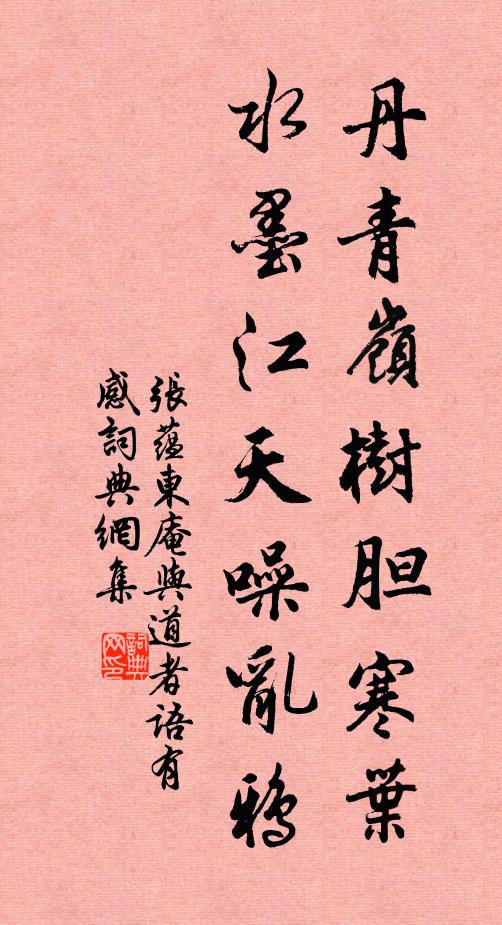 丹青嶺樹胆寒葉
水墨江天噪亂鴉
張蘊東庵與道者語有
感詞典網集
詞典网印